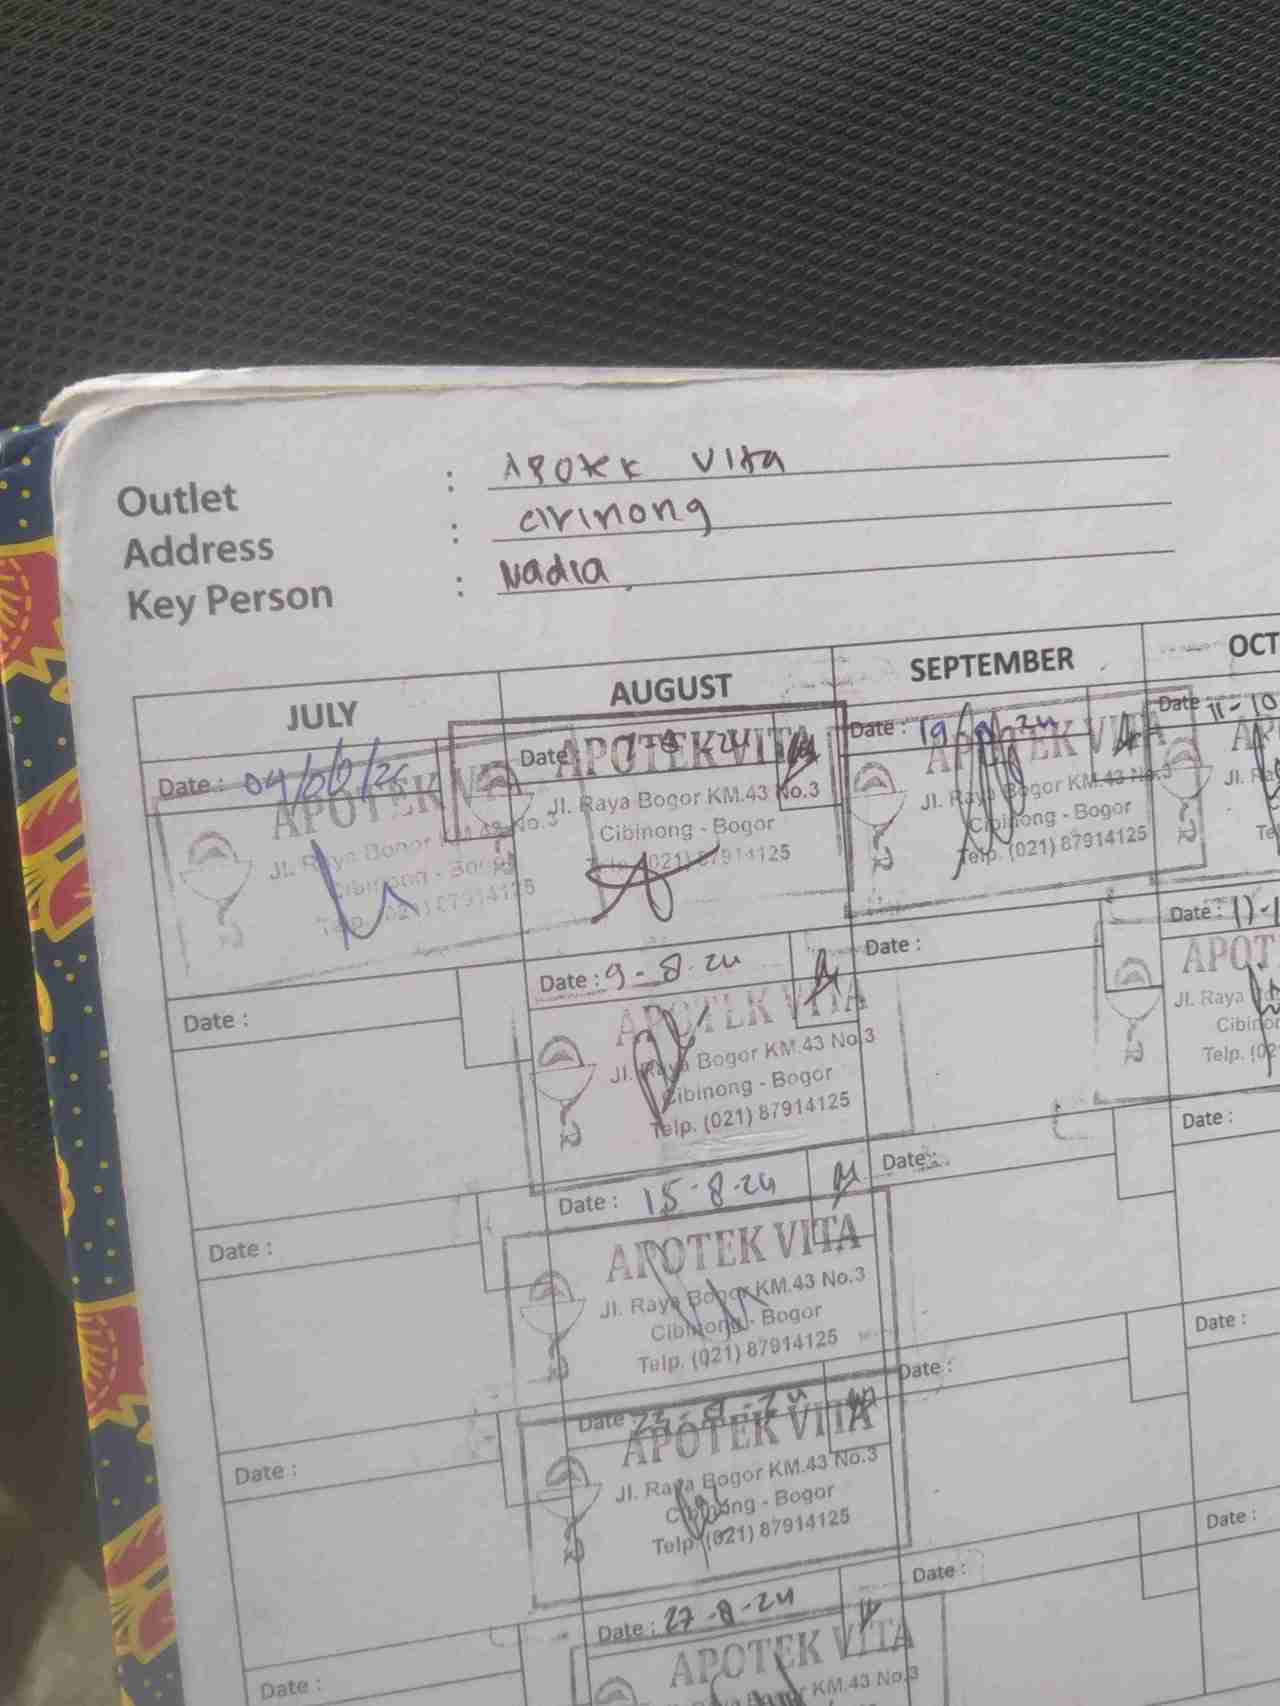 Outlet : Apotek Vita
Address : Cirinong
Key Person : Nadia
JULY
AUGUST
SEPTEMBER
OCT
Date :
APOTEK
Jl. Raya Bogor KM.43 No.3
Cibinong - Bogor
Telp. (021) 87914125
Date
APOTEK VITA
Jl. Raya Bogor KM.43 No.3
Cibinong - Bogor
Telp. (021) 87914125
Date : 19
APOTEK VITA
Jl. Raya Bogor KM.43 No.3
Cibinong - Bogor
Telp. (021) 87914125
Date 11-10
Jl.
Date :
Date : 9-8-24
APOTEK VITA
Jl. Raya Bogor KM.43 No.3
Cibinong - Bogor
Telp. (021) 87914125
Date :
Date :
APOT
Jl. Raya
Telp. (02
Date :
Date : 15-8-24
APOTEK VITA
Jl. Raya Bogor KM.43 No.3
Cibinong - Bogor
Telp. (021) 87914125
Date :
Date :
Date :
Date 23-8-24
APOTEK VITA
Jl. Raya Bogor KM.43 No.3
Cibinong - Bogor
Telp. (021) 87914125
Date :
Date :
Date :
Date : 27-8-24
APOTEK VITA
KM.43 No.3
Date :
Date :